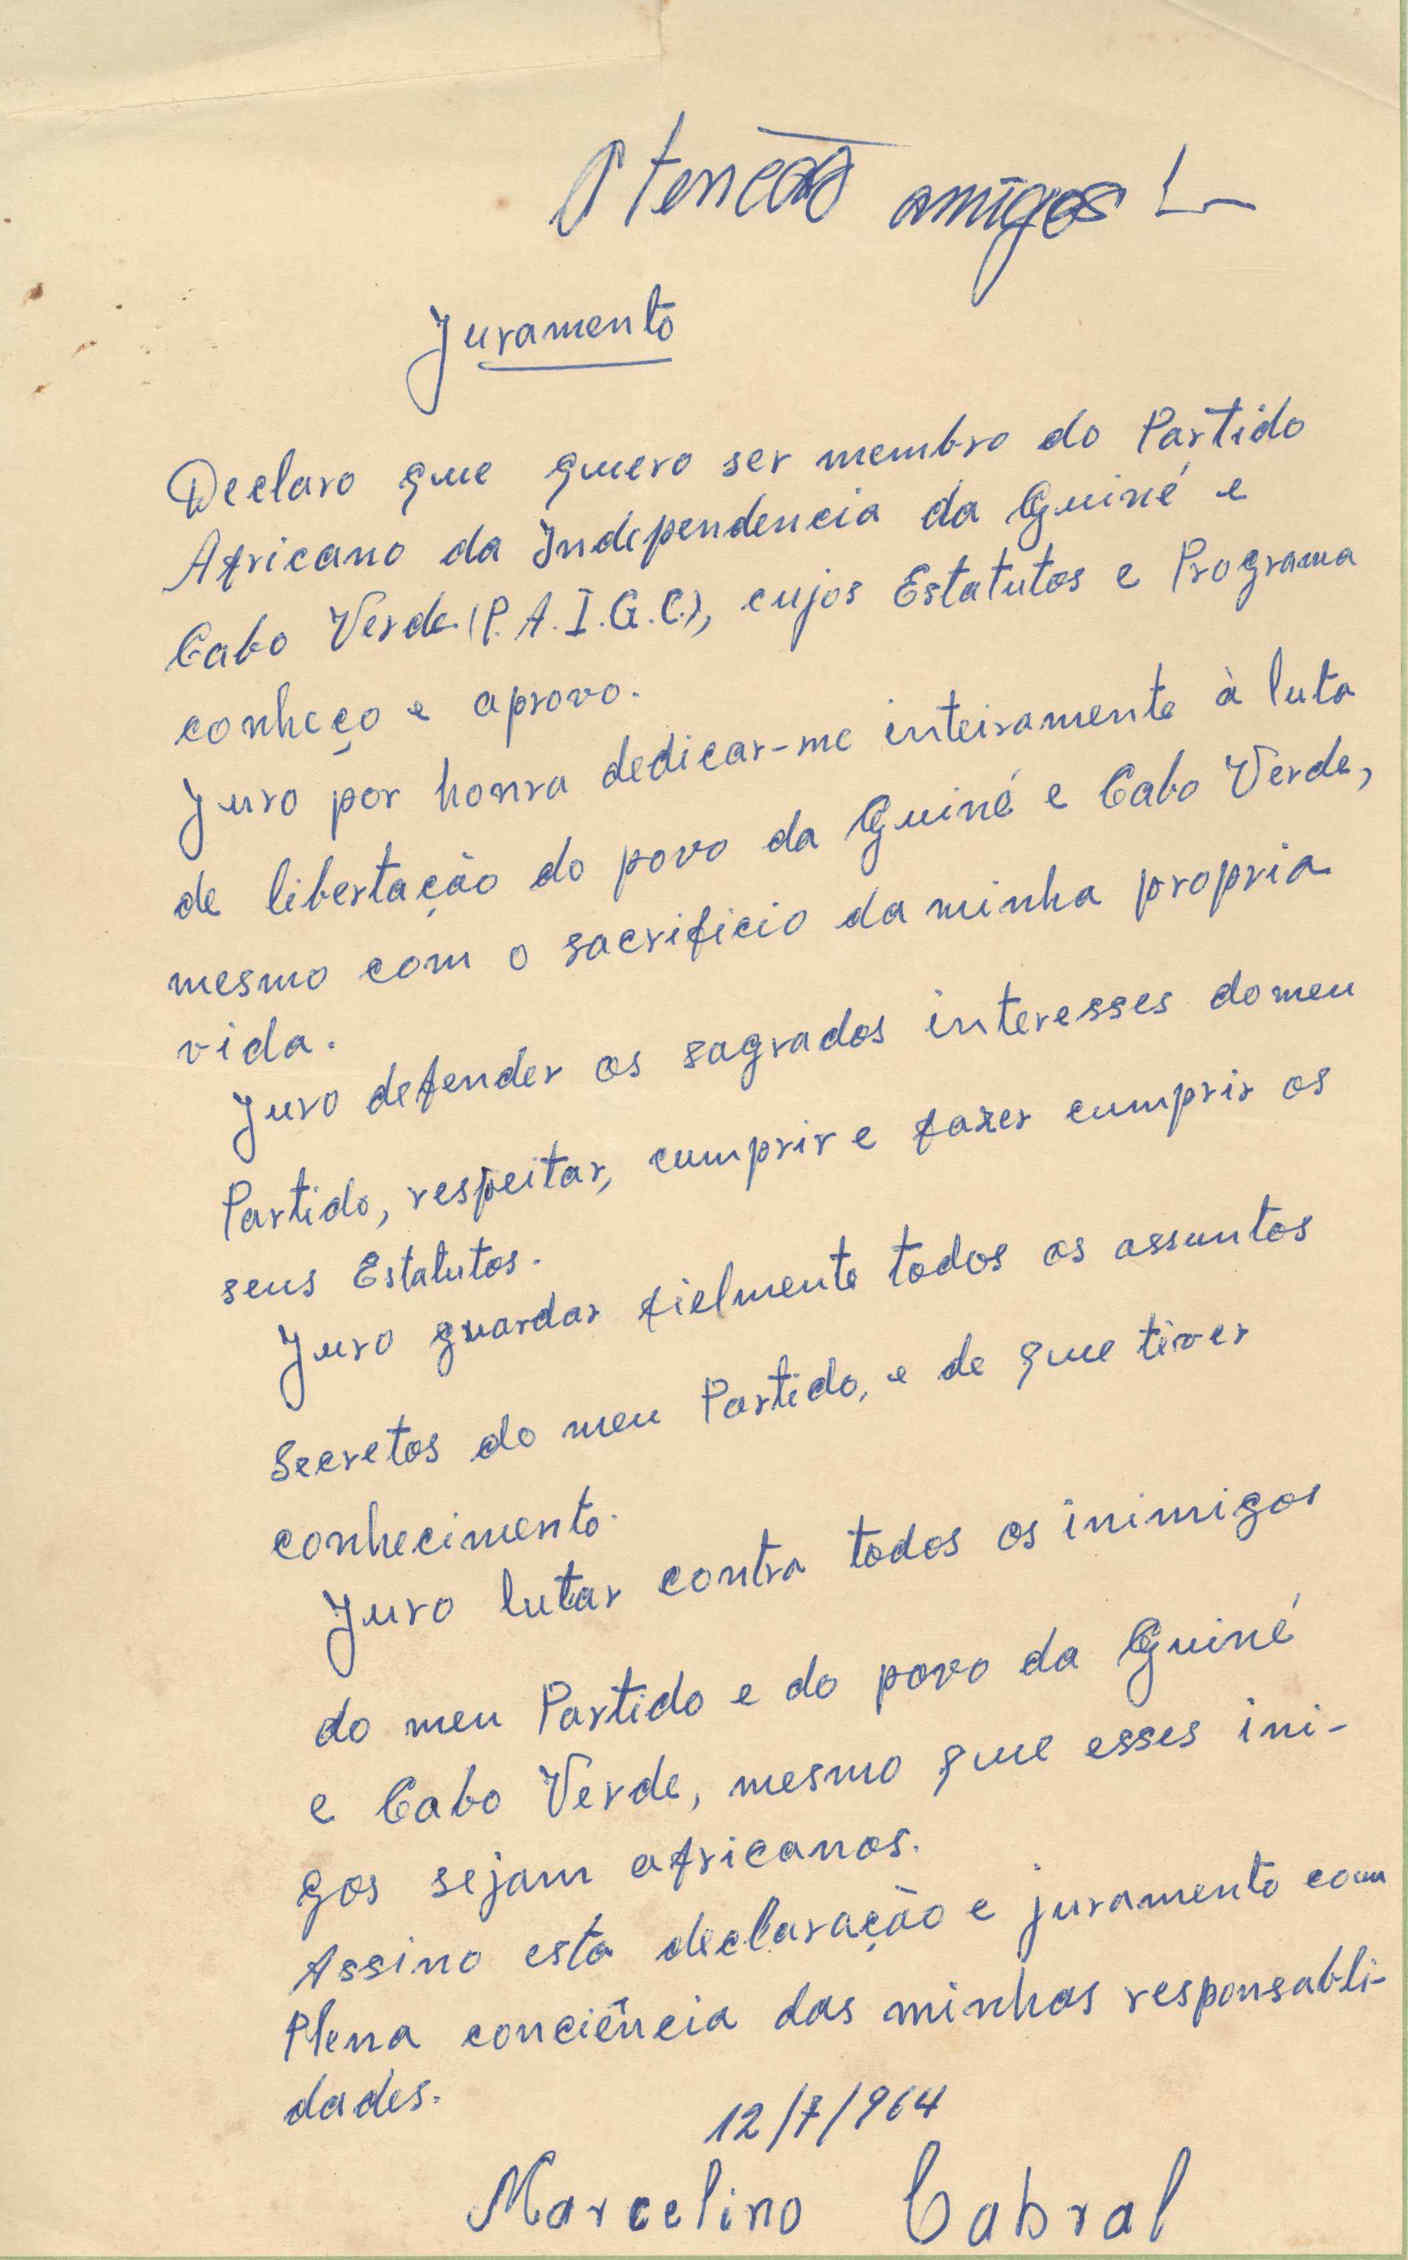 Atenção amigos!
Juramento
Declaro que quero ser membro do Partido
Africano da Independencia da Guiné e
Cabo Verde (P.A.I.G.C.), cujos Estatutos e Programa
conheço e aprovo.
Juro por honra dedicar-me inteiramente à luta
de libertação do povo da Guiné e Cabo Verde,
mesmo com o sacrificio da minha propria
vida.
Juro defender os sagrados interesses do meu
Partido, respeitar, cumprir e fazer cumprir os
seus Estatutos.
Juro guardar fielmente todos os assuntos
Secretos do meu Partido, e de que tiver
conhecimento.
Juro lutar contra todos os inimigos
do meu Partido e do povo da Guiné
e Cabo Verde, mesmo que esses ini-
gos sejam africanos.
Assino esta declaração e juramento com
Plena conciência das minhas responsabli-
dades.
12/7/964
Marcelino Cabral